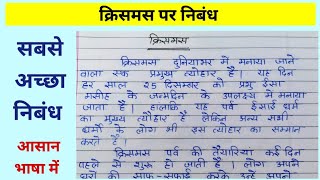 क्रिसमस पर निबंध
सबसे
अच्छा
निबंध
आसान
भाषा में
क्रिसमस
क्रिसमस दुनियाभर में मनाया जाने
वाला एक प्रमुख त्योहार है । यह दिन
हर साल 25 दिसम्बर को प्रभु ईसा
मसीह के जन्मदिन के उपलक्ष्य में मनाया
जाता है । हालांकि यह पर्व ईसाई धर्म
का मुख्य त्यौहार है लेकिन अन्य सभी
धर्मों के लोग भी इस त्योहार का सम्मान
करते है ।
क्रिसमस पर्व की तैयारियां कई दिन
पहले से शुरू हो जाती है । लोग अपने
घरों की साफ-सफाई करके उन्हे अपने